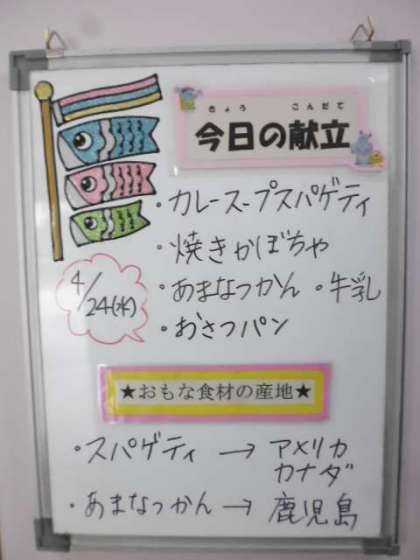 きょう こんだて
今日の献立
・カレースープスパゲティ
・焼きかぼちゃ
・あまなつかん ・牛乳
・おさつパン
4/24(水)
★おもな食材の産地★
・スパゲティ → アメリカ
カナダ
・あまなつかん → 鹿児島